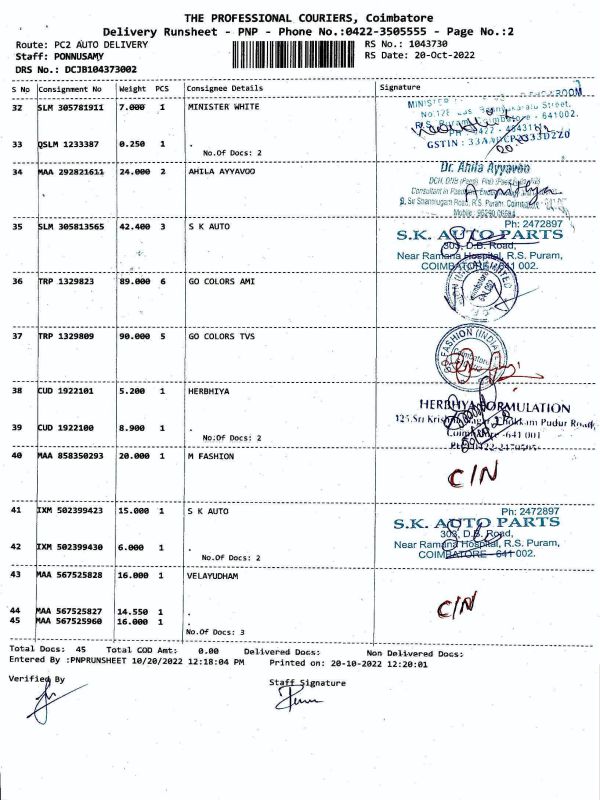 THE PROFESSIONAL COURIERS, Coimbatore
Delivery Runsheet - PNP - Phone No.:0422-3505555 - Page No.:2
Route: PC2 AUTO DELIVERY RS No.: 1043730
Staff: PONNUSAMY RS Date: 20-Oct-2022
DRS No.: DCJB104373002
S No Consignment No Weight PCS Consignee Details Signature
32 SLM 305781911 7.000 1 MINISTER WHITE
MINISTER
641002.
33 QSLM 1233387 0.250 1 .
No.Of Docs: 2
GSTIN :
34 MAA 292821611 24.000 2 AHILA AYYAVOO
Dr. Ahila Ayyavoo
Consultant in
R.S. Puram
35 SLM 305813565 42.400 3 S K AUTO
Ph: 2472897
S.K. AUTO PARTS
303, D.B. Road,
Near Ramana Hospital, R.S. Puram,
COIMBATORE - 641 002.
36 TRP 1329823 89.000 6 GO COLORS AMI
37 TRP 1329809 90.000 5 GO COLORS TVS
FASHION (INDIA)
Coimbatore
38 CUD 1922101 5.200 1 HERBHIYA
HERBHIYA FORMULATION
39 CUD 1922100 8.900 1 .
No.Of Docs: 2
125,Sri Krishna Nagar, Chokkam Pudur Road,
Coimbatore -641 001
40 MAA 858350293 20.000 1 M FASHION
C/N
41 IXM 502399423 15.000 1 S K AUTO
Ph: 2472897
S.K. AUTO PARTS
303, D.B. Road,
42 IXM 502399430 6.000 1 .
No.Of Docs: 2
Near Ramana Hospital, R.S. Puram,
COIMBATORE - 641 002.
43 MAA 567525828 16.000 1 VELAYUDHAM
C/N
44 MAA 567525827 14.550 1 .
45 MAA 567525960 16.000 1 .
No.Of Docs: 3
Total Docs: 45 Total COD Amt: 0.00 Delivered Docs: Non Delivered Docs:
Entered By :PNPRUNSHEET 10/20/2022 12:18:04 PM Printed on: 20-10-2022 12:20:01
Verified By Staff Signature